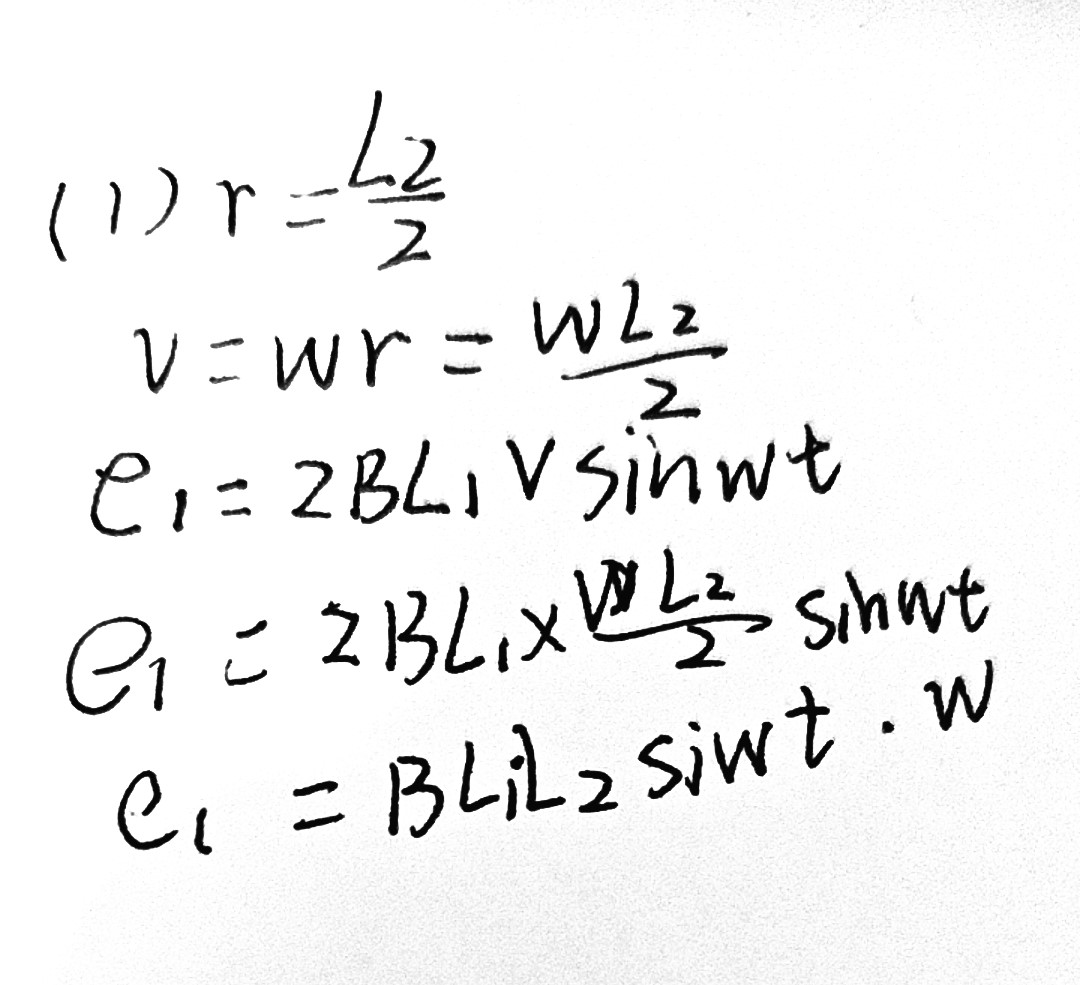 (1) r = L₂/2
v = wr = wL₂/2
e₁ = 2BL₁ v sinwt
e₁ = 2BL₁ × wL₂/2 sinwt
e₁ = BL₁L₂ siwt . w